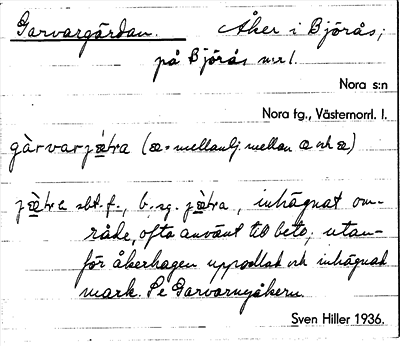 Garvargärdan. Åker i Björås;
på Björås nr 1.
Nora s:n
Nora tg., Västernorrl. l.
gàrvarjæ̀tra (æ = mellanlj. mellan a och æ)
jæ̀tra sbt. f., b. sg. jæ̀tra, inhägnat om-
råde, ofta använt till bete; utan-
för åkerhagen uppodlad och inhägnad
mark. Se Garvarnyåkern.
Sven Hiller 1936.